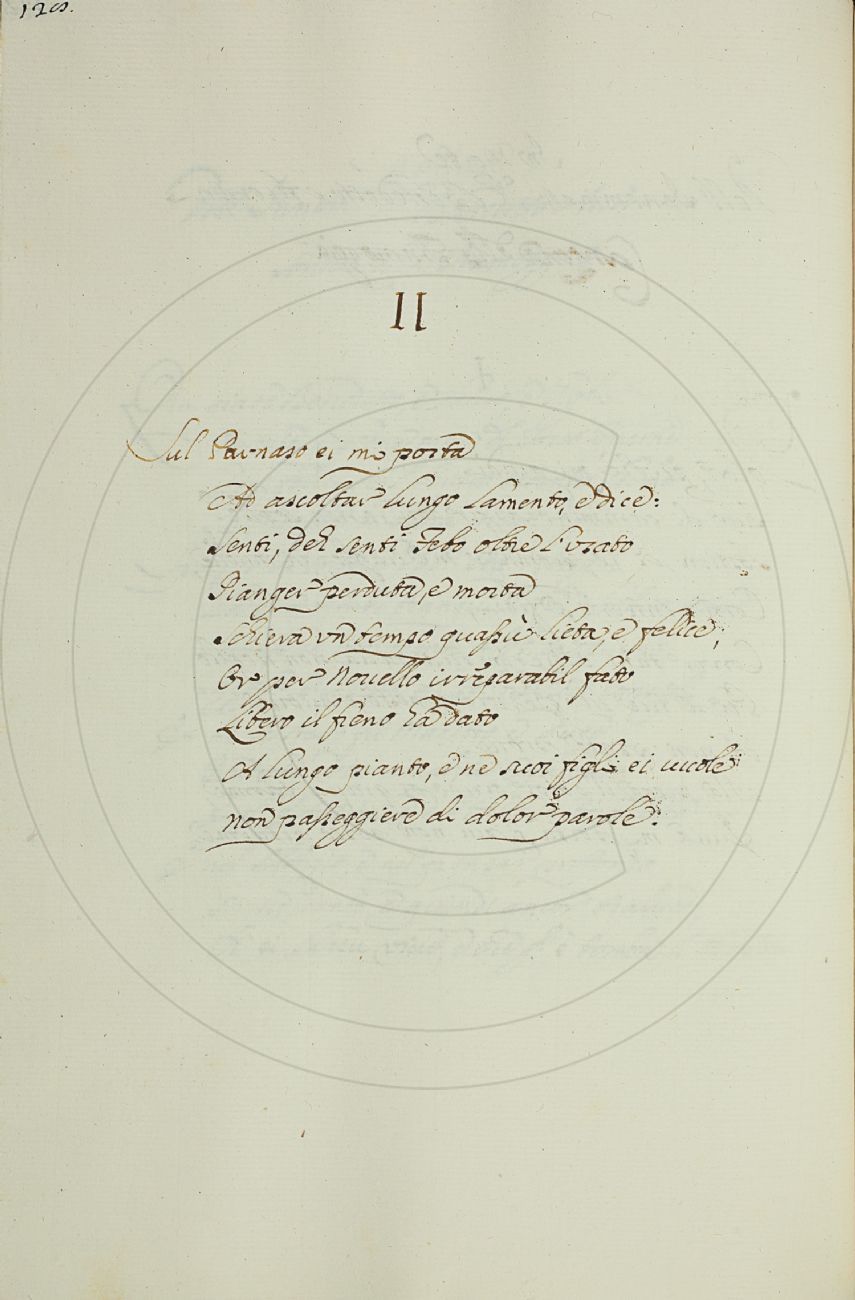 II
Sul Parnaso ei mi porta
Ad ascoltar lungo lamento, e dice:
Senti, deh senti Febo oltre l'usato
Pianger perduta, e morta
Schiera un tempo quassù lieta, e felice,
Or per novello irreparabil fato
Libero il freno ha dato
A lungo pianto, e ne suoi figli ei vuole
non passeggiere di dolor parole: